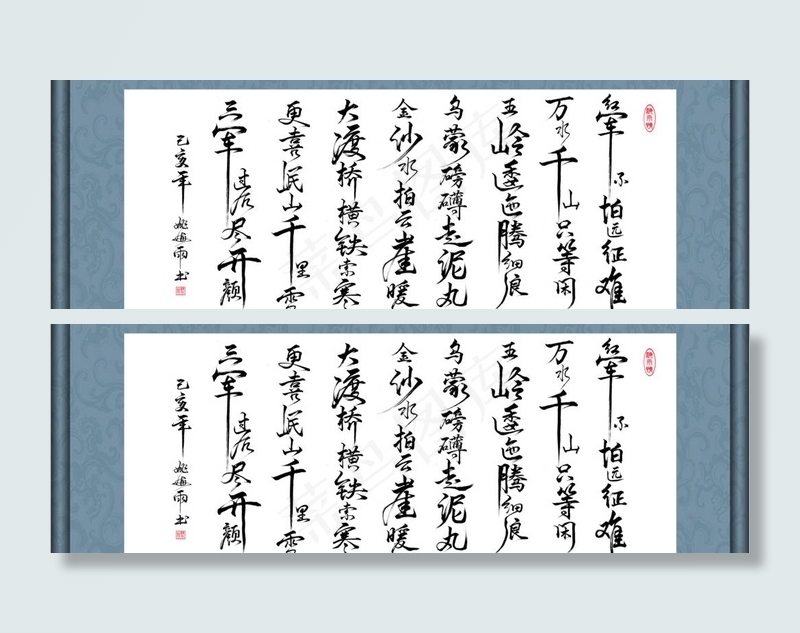 红军不怕远征难
万水千山只等闲
五岭逶迤腾细浪
乌蒙磅礴走泥丸
金沙水拍云崖暖
大渡桥横铁索寒
更喜岷山千里雪
三军过后尽开颜
己亥年 姚雨书
红军不怕远征难
万水千山只等闲
五岭逶迤腾细浪
乌蒙磅礴走泥丸
金沙水拍云崖暖
大渡桥横铁索寒
更喜岷山千里雪
三军过后尽开颜
己亥年 姚雨书